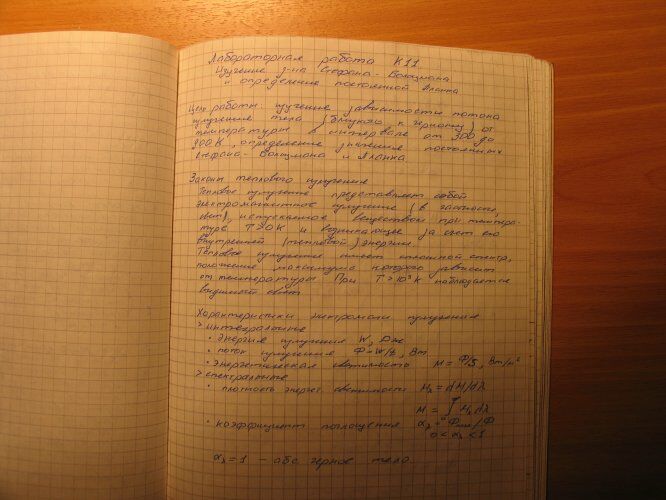 Лабораторная работа К11
Изучение з-на Стефана-Больцмана
и определение постоянной Планка
Цель работы: изучение зависимости потока
излучения тела (близкого к черному) от
температуры в интервале от 300 до
900 К, определение значения постоянных
Стефана-Больцмана и Планка.
Законы теплового излучения
Тепловое излучение представляет собой
электромагнитное излучение (в частности,
свет), испускаемое веществом при темпера-
туре T>0 K и возникающее за счет его
внутренней (тепловой) энергии.
Тепловое излучение имеет сплошной спектр,
положение максимума которого зависит
от температуры. При T>10³ K наблюдается
видимый свет
Характеристики электромагн излучения
> интегральные
• энергия излучения W, Дж
• поток излучения Ф=W/t, Вт
• энергетическая светимость M = Ф/S, Вт/м²
> спектральные
• плотность энергет. светимости Mλ = dM/dλ
M = ∫Mλdλ
• коэффициент поглощения αλ = Фпогл/Ф
0 < αλ < 1
αλ = 1 – абс черное тело